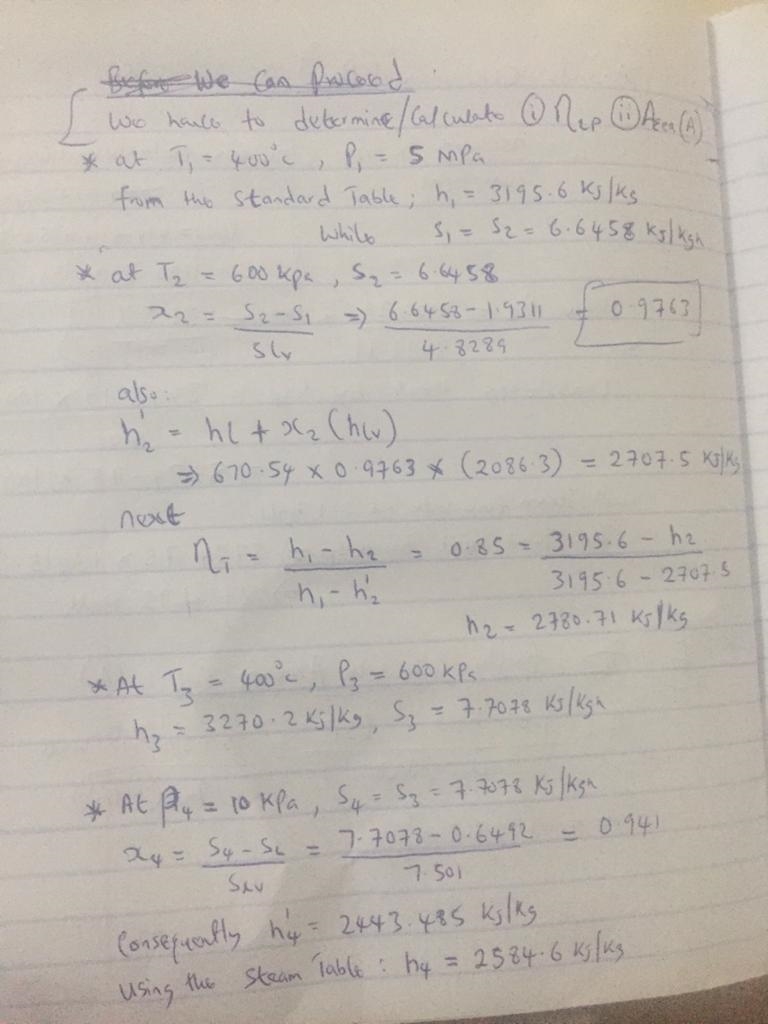 Before We Can Proceed
We have to determine/Calculate (i) η2p (ii) Area(A)
* at T₁ = 400°c, P₁ = 5 MPa
from the Standard Table; h₁ = 3195.6 KJ/Kg
While S₁ = S₂ = 6.6458 KJ/kgk
* at T₂ = 600 kpa, S₂ = 6.6458
x₂ = (S₂ - S₁)/Slv ⇒ (6.6458 - 1.9311)/4.8289 = 0.9763
also:
h₂' = hl + x₂ (hlv)
⇒ 670.54 × 0.9763 * (2086.3) = 2707.5 KJ/Kg
next
ηT = (h₁ - h₂)/(h₁ - h₂') = 0.85 = (3195.6 - h₂)/(3195.6 - 2707.5)
h₂ = 2780.71 KJ/kg
* At T₃ = 400°c, P₃ = 600 KPa
h₃ = 3270.2 KJ/Kg, S₃ = 7.7078 KJ/Kgk
* At P₄ = 10 KPa, S₄ = S₃ = 7.7078 KJ/Kgk
x₄ = (S₄ - SL)/SLv = (7.7078 - 0.6492)/7.501 = 0.941
Consequently h₄' = 2443.485 KJ/Kg
Using the Steam Table: h₄ = 2584.6 KJ/Kg